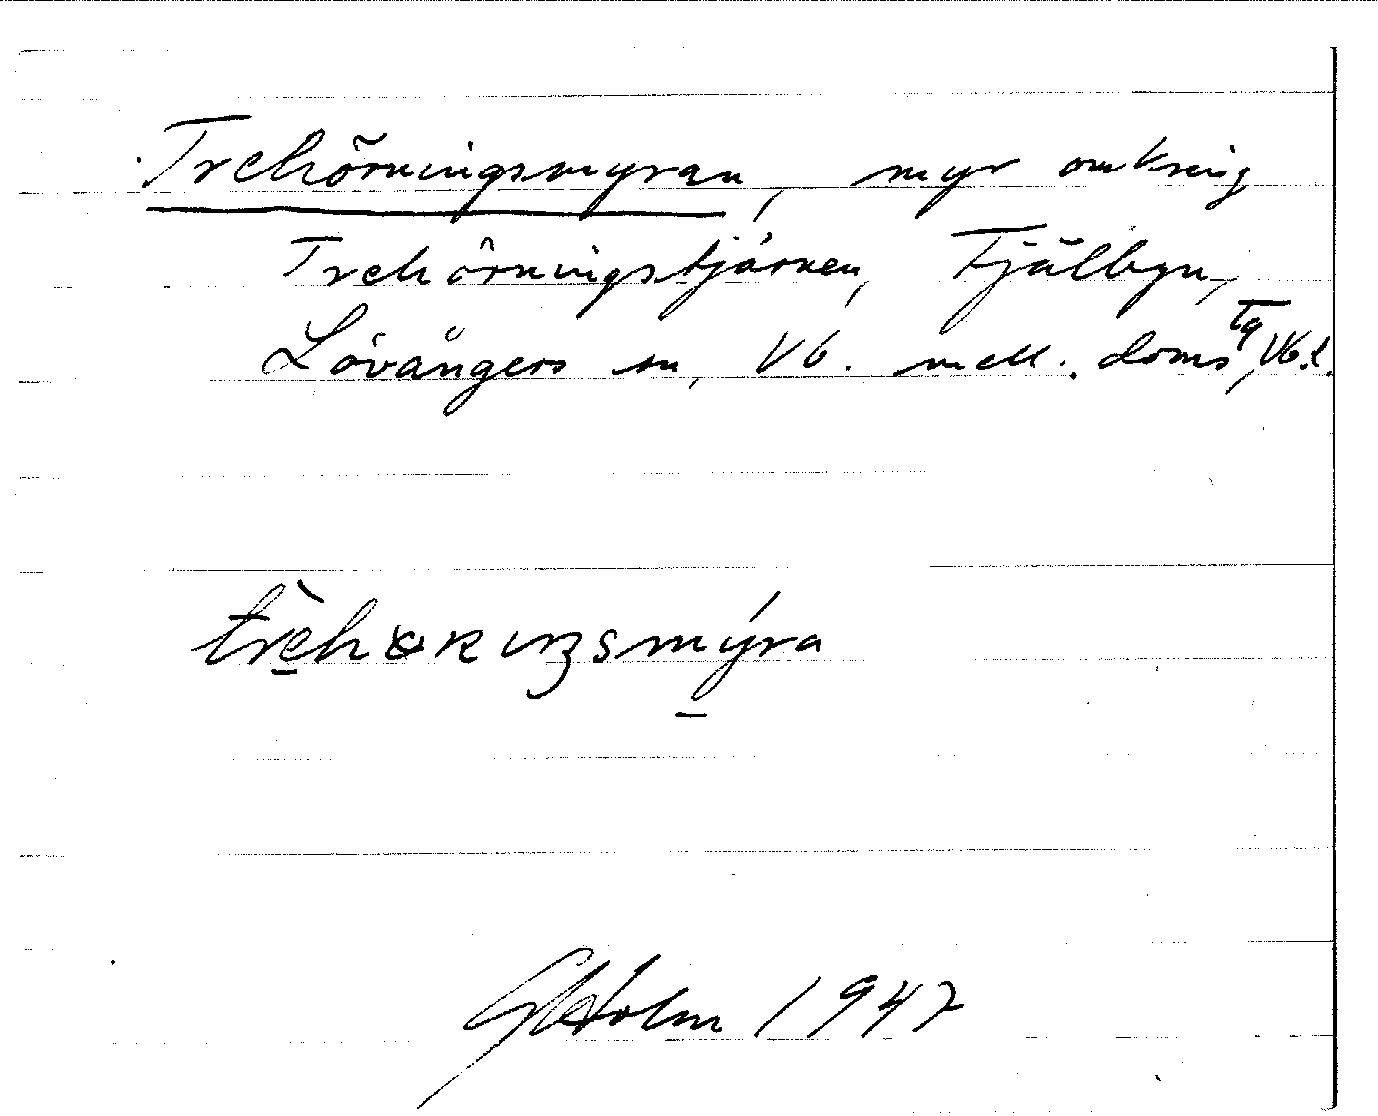 Trehörningsmyran, myr omkring
Trehörningstjärnen, Fjälbyn,
Lövångers sn, Vb. mell. doms tg, Vb. l.
G Holm 1947